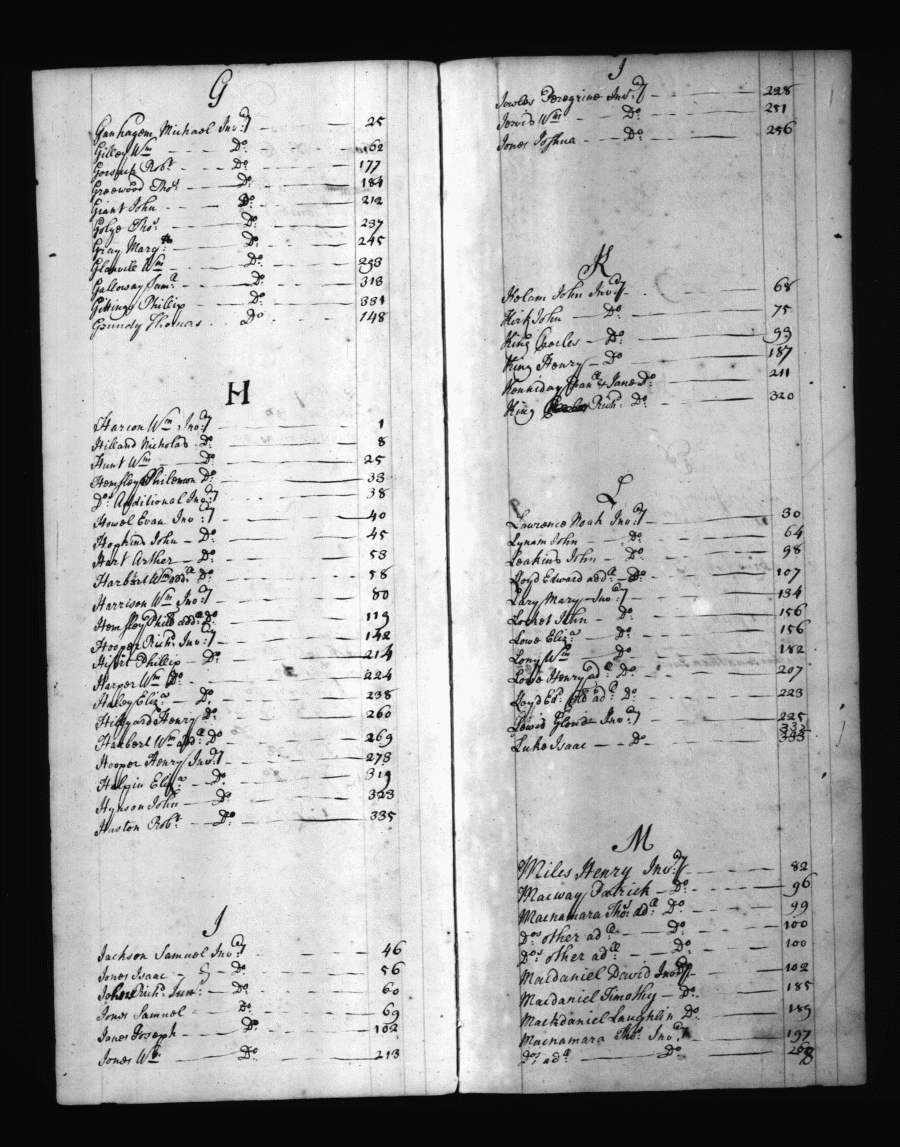 G
Ganhagem, Michael Inv:ry 25
Gilley Wm Do 162
Robt Do 177
Greewood Thos Do 184
Giant John Do 212
Golge Thos Do 237
Gray Mary Do 245
Glanvile Wm Do
Galloway Saml Do 318
Gittings Phillip Do 331
Grundy Thomas Do 148
H
Harion Wm Inv:ry 1
Hilland Nicholas Do 8
Hunt Wm Do 25
Hemsley Philemon Do 33
Dos Additional Inv:ry 38
Howel Evan Inv:ry 40
Hopkins John Do 45
Hart Arther Do 53
Harbert Wm add:l Do 58
Harrison Wm Inv:ry 80
Hemsley Phile add:l Do 119
Hooper Richd Inv:ry 142
Phillip Do 214
Harper Wm Do 224
Haley Eliza Do 238
Hillyard Henry Do 260
Harbert Wm add:l Do 269
Hooper Henry Inv:ry 273
Halpin Eliza Do 319
Hynson John Do 323
Huston Robt Do 335
I
Jackson Samuel Inv:ry 46
Jones Isaac Do 56
Richd Junr Do 60
Jones Samuel Do 69
Jones Joseph Do 102
Jones Wm Do 213
J
Jowles Peregrine Inv:ry 228
Jervis Wm Do 251
Jones Joshua Do 256
K
Holam John Inv:ry 68
Kirk John Do 75
King Charles Do 93
King Henry Do 187
Kenniday & Jane Do 211
King Richd Do 320
L
Lawrence Noah Inv:ry 30
Lynam John Do 64
Leakins John Do 98
Lloyd Edward add:l Do 107
Lary Mary Inv:ry 134
Locket John Do 156
Lowe Eliza Do 156
Lony Wm Do 182
Lowe Henry ad:l Do 207
Loyd Ed: ad:l Do 223
Lewis Inv:ry 225
333
Luke Isaac Do 333
M
Miles Henry Inv:ry 82
Macway Patrick Do 96
Macnamara Thos ad:l Do 99
Dos other ad:l Do 100
Dos other ad:l Do 100
Macdaniel David Inv:ry 102
Macdaniel Timothy Do 185
Mackdaniel Laughlin Do 189
Macnamara Thos Inv:ry 197
Dos ad:l Do